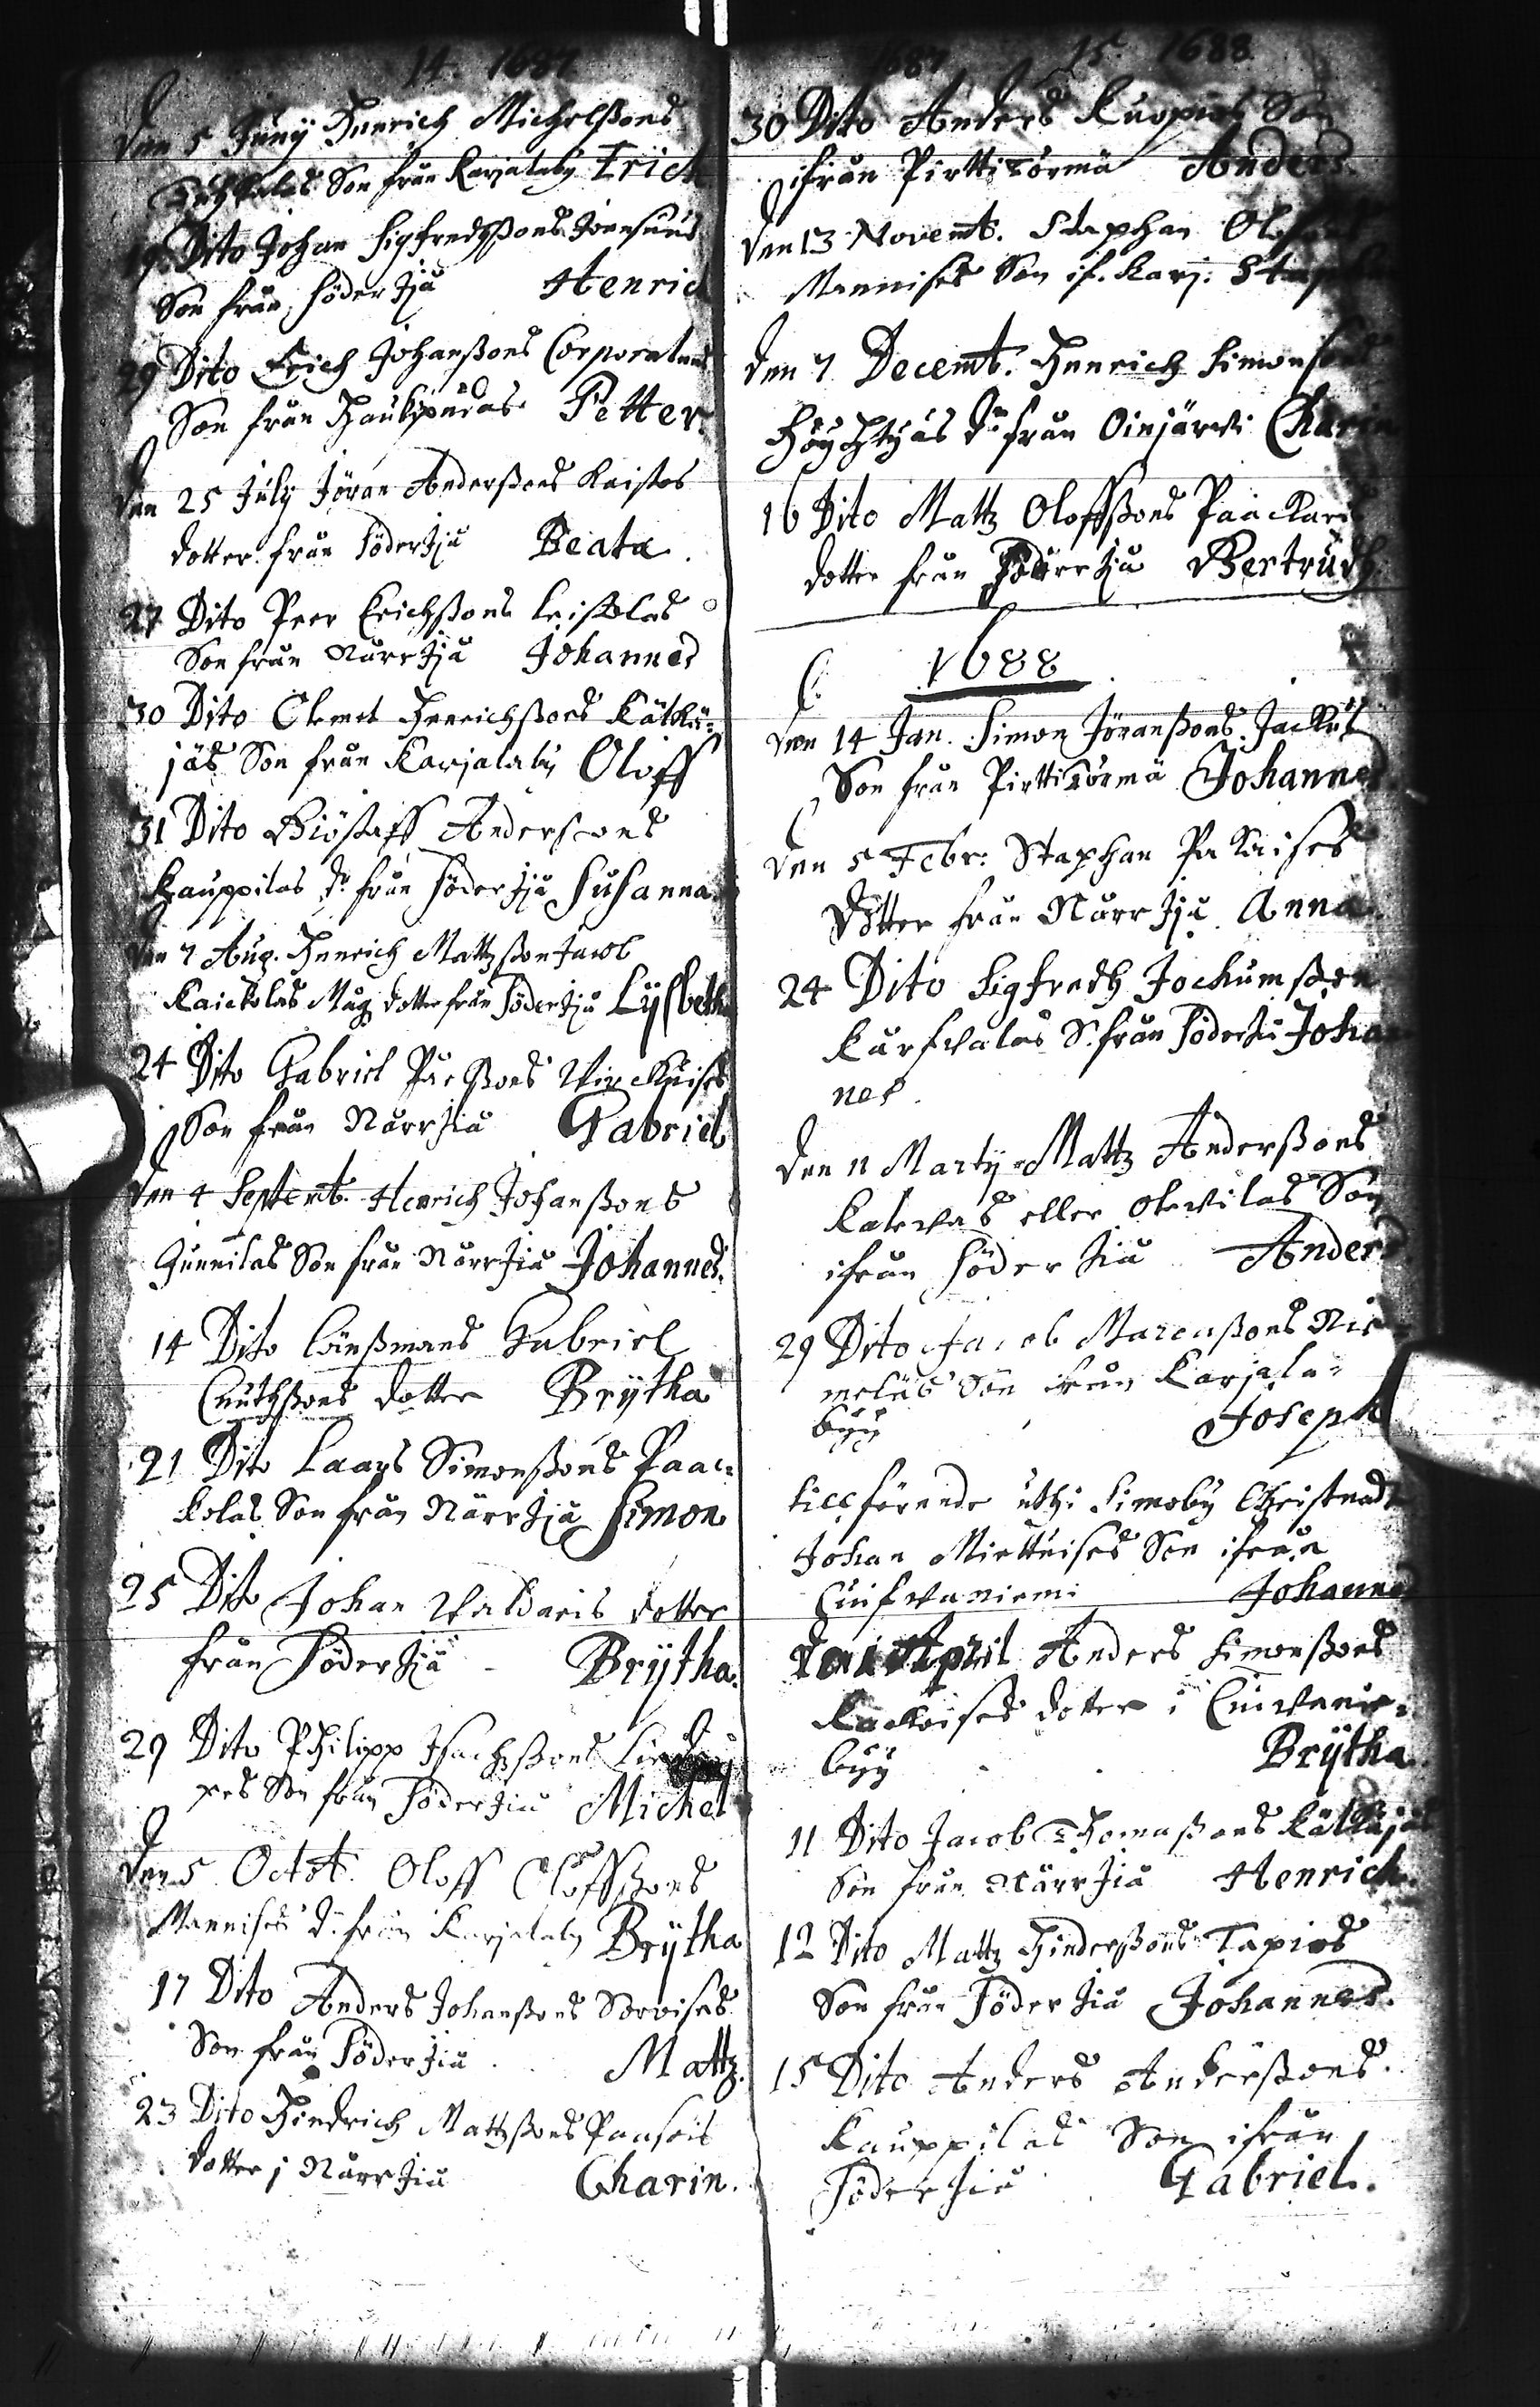 14. 1687
Den 5 Junÿ Henrich Michelßons
Son från Karjalabÿ Erich
19 Dito Johan Sigfredhßons Jonnsuus
Son från Söder Jjå Henrich
29 Dito Erich Johanßons Corporalens
Son från Haukipudas Petter.
Den 25 Julÿ Jöran Anderßons Kaistos
dotter från Söder Jjå Beata.
27 Dito Peer Erichßons Leiskolas
Son från Nårr Jjå Johannes
30 Dito Clemet Henrichßons Kätkä-
jäs Son från Karjalabÿ Oloff
31 Dito Giöstaff Anderssons
Kauppilas d. från Söder Jjå Susanna.
Den 7 Aug. Henrich Mattzßon Jacob
Kaickolas Måg dotter från Söder Jjå Lÿsbetha
24 Dito Gabriel Påelßons Wirckuises
Son från Nårr Jiå Gabriel
Den 4 Septemb. Henrich Johanßons
Hunnilas Son från Nårr Jiå Johannes.
14 Dito Länßmans Gabriel
Cnuthßons dotter Brÿtha
21 Dito Laars Simonßons Paac-
kolas Son från Nårr Jjå Simon
25 Dito Johan Waldaris dotter
från Söder Jjå - Brÿtha.
29 Dito Philipp Isachßons
Son från Söder Jiå Michel
Den 5 Octob. Oloff Oloffßons
Mannises d. från Karjalabÿ Brÿtha
17 Dito Anders Johanßons Sorvises
Son från Söder Jjå Mattz.
23 Dito Hindrich Mattzßons Paasois
dotter j Nårr Jiå Charin.
1687 15. 1688
30 Dito Anders Kuopus Son
ifrån Pirttitörmä Anders.
Den 13 Novemb. Staphan
Mannises Son if. Karj.
Den 7 Decemb. Henrich Simonßons
Höyhtyäs dr från Oinjärvi Charin
16 Dito Mattz Oloffßons Paackari
dotter från Söder Jjå Gertrudh.
1688
Den 14 Jan. Simon Jöranßons Jackus
Son från Pirttitörmä Johannes.
Den 5 Febr. Staphan Pakaises
Dotter från Nårr Jjå Anna.
24 Dito Sigfredh Jochumßon
Karsvalas S. från Söder Jiå Johan
nes.
Den 11 Martÿ Mattz Anderßons
Kalevas eller Olevilas Son
ifrån Söder Jiå Anders
29 Dito Jacob Marcusßons Nie-
meläs Son ifrån Karjala-
bÿÿ Joseph
tillförende uthi Simobÿ Christnadt
Johan Miettuises Son ifrån
Cuisvaniemi Johannes
Den 1 April Anders Simonßons
Kackoises dotter i Cuivanie-
bÿÿ Brÿtha
11 Dito Jacob Thomaßons Kätkäjäs
Son från Nårr Jiå Henrich.
12 Dito Mattz Hinderßons Tapios
Son från Söder Jiå Johannes.
15 Dito Anders Anderßons
Kauppilas Son ifrån
Söder Jiå Gabriel.